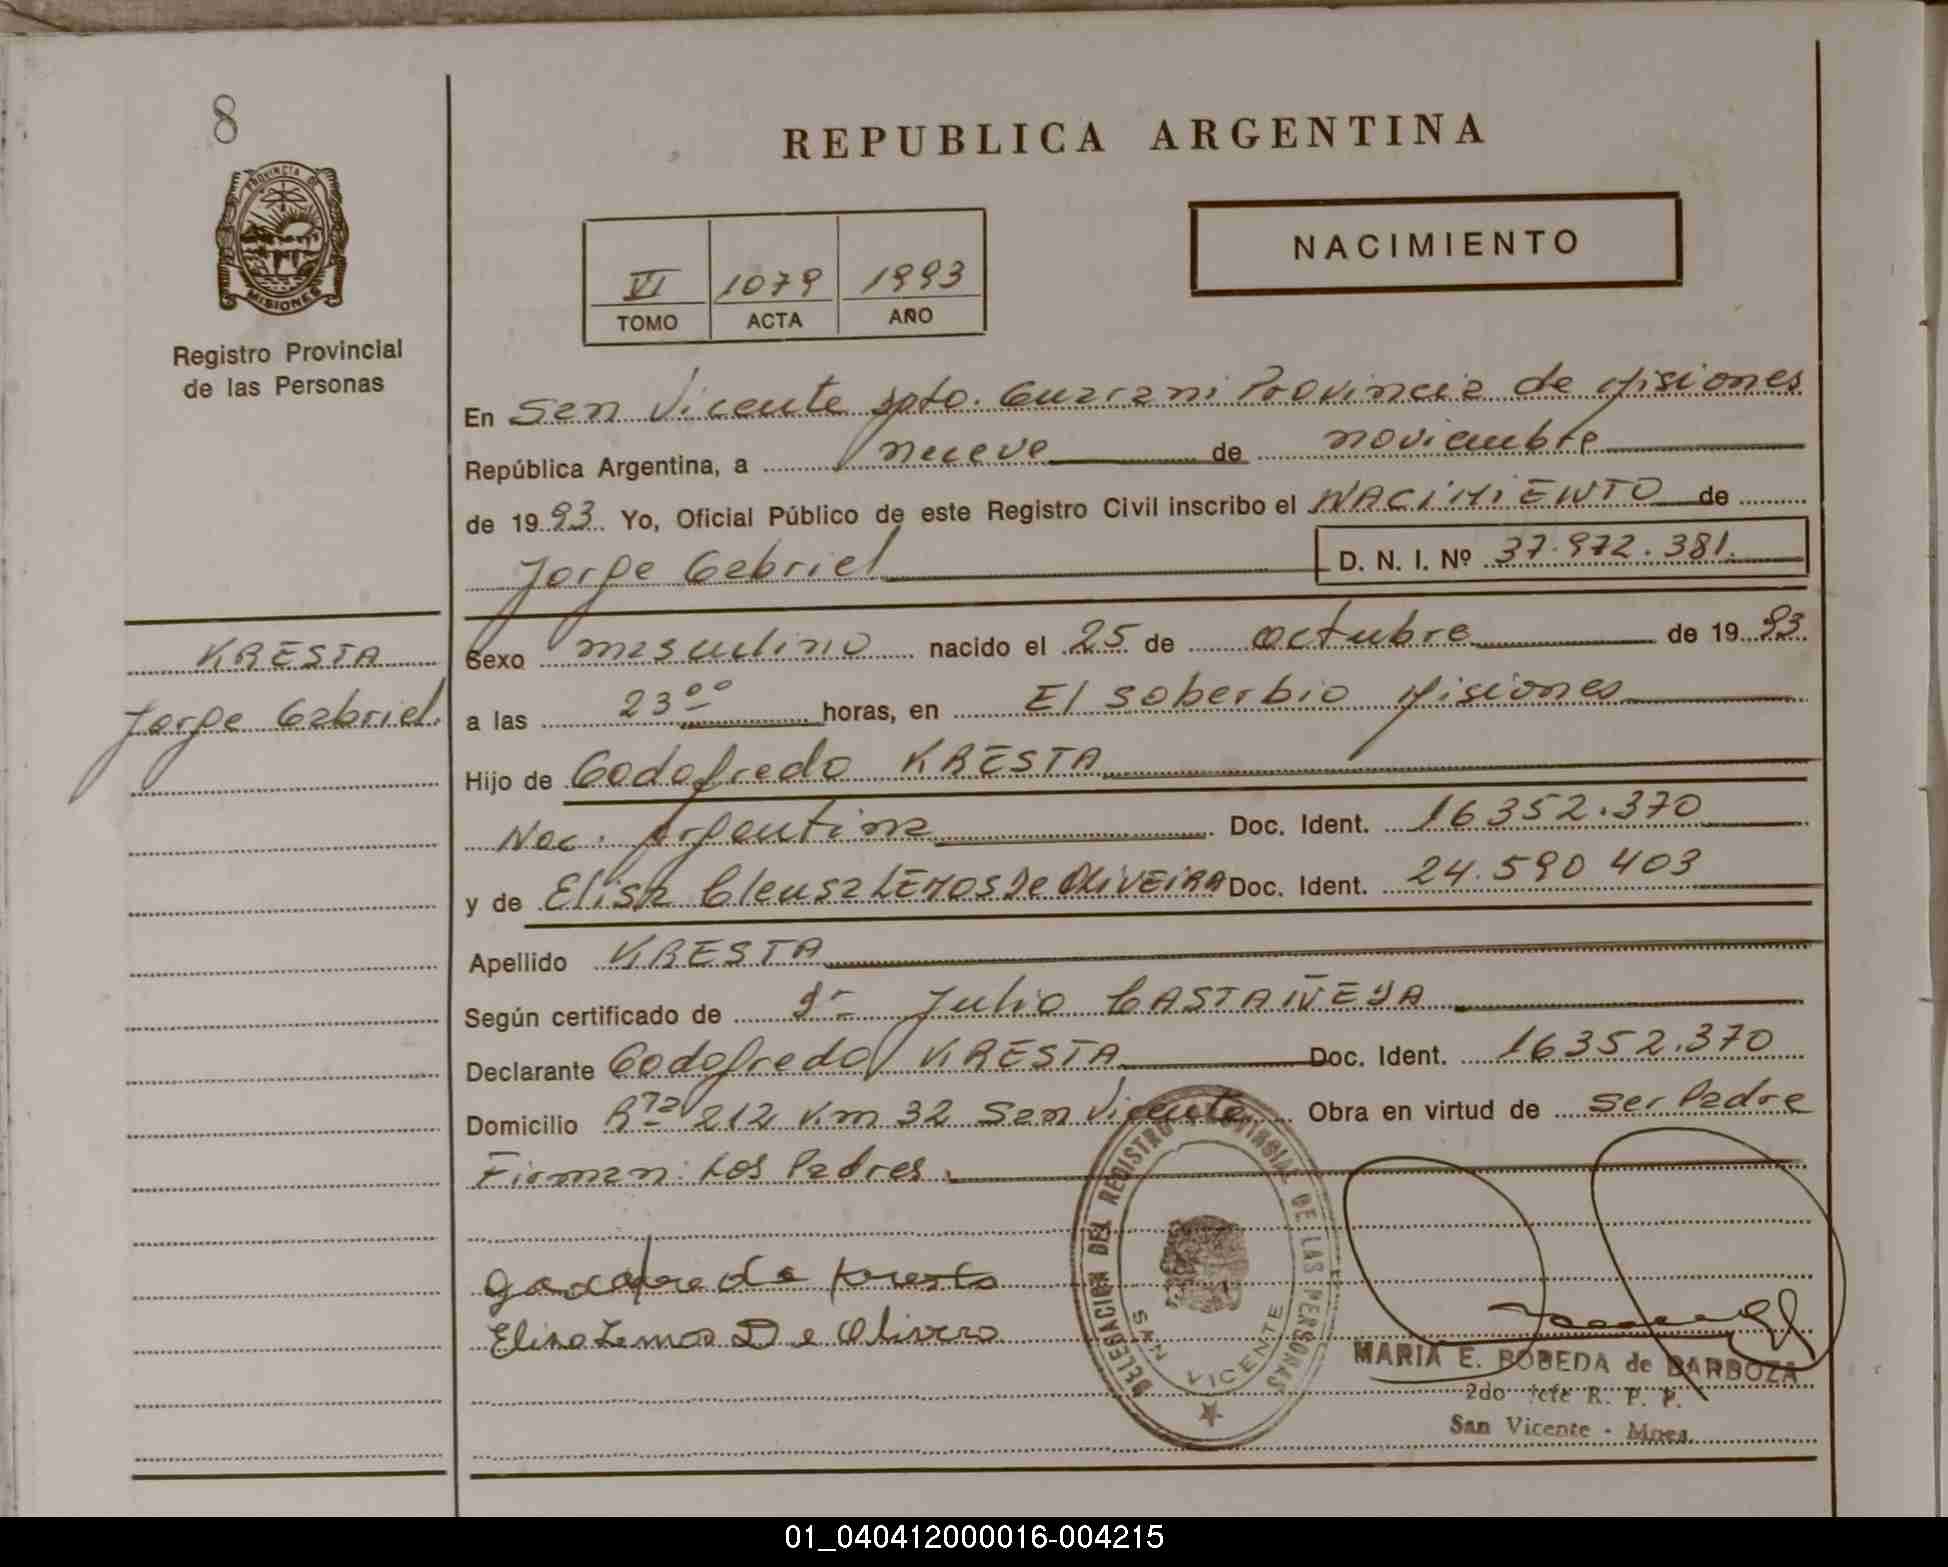 8
REPUBLICA ARGENTINA
PROVINCIA DE
MISIONES
Registro Provincial
de las Personas
NACIMIENTO
VI 1079 1993
TOMO ACTA AÑO
En San Vicente Dpto. Guarani Provincia de Misiones
República Argentina, a nueve de noviembre
de 1993 Yo, Oficial Público de este Registro Civil inscribo el NACIMIENTO de
Jorge Gabriel D. N. I. Nº 37.972.381.
KRESTA
Jorge Gabriel.
Sexo masculino nacido el 25 de octubre de 1993.
a las 23⁰⁰ horas, en El Soberbio Misiones
Hijo de Godofredo KRESTA
Nac. Argentina Doc. Ident. 16352.370
y de Elisa Cleusa LEMOS De OLIVEIRA Doc. Ident. 24.590 403
Apellido KRESTA
Según certificado de Dr Julio CASTAÑEDA
Declarante Godofredo KRESTA Doc. Ident. 16352.370
Domicilio Rta 212 Km 32 San Vicente Obra en virtud de ser Padre
Firman: Los Padres.
DELEGACION DEL REGISTRO PROVINCIAL DE LAS PERSONAS
SAN VICENTE
Elisa Lemos De Olivera
MARIA E. BOBEDA de BARBOZA
2do Jefe R. P. P.
San Vicente - Mnes.
01_040412000016-004215